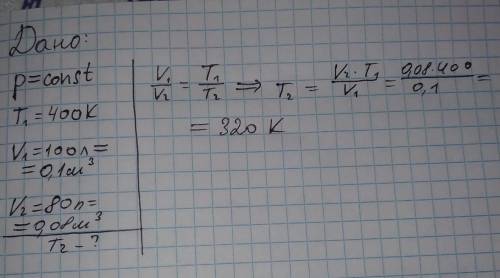 Дано:
p=const
T₁=400K
V₁=100л=
=0,1м³
V₂=80л=
=0,08м³
T₂-?
V₁/V₂ = T₁/T₂ ⟹ T₂ = V₂·T₁/V₁ = 0,08·400/0,1 =
= 320 K